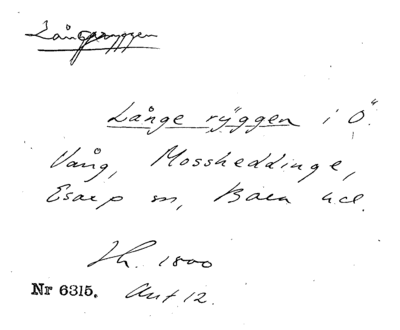 Långeryggen
Långe ryggen i Ö.
Vång, Mossheddinge,
Esarp sn, Bara hd.
Jh. 1800
Nr 6315. Akt 12.